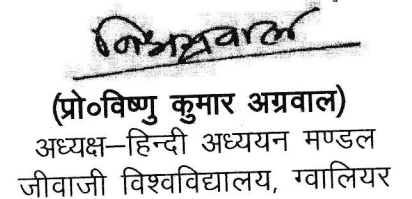 (प्रो०विष्णु कुमार अग्रवाल)
अध्यक्ष–हिन्दी अध्ययन मण्डल
जीवाजी विश्वविद्यालय, ग्वालियर